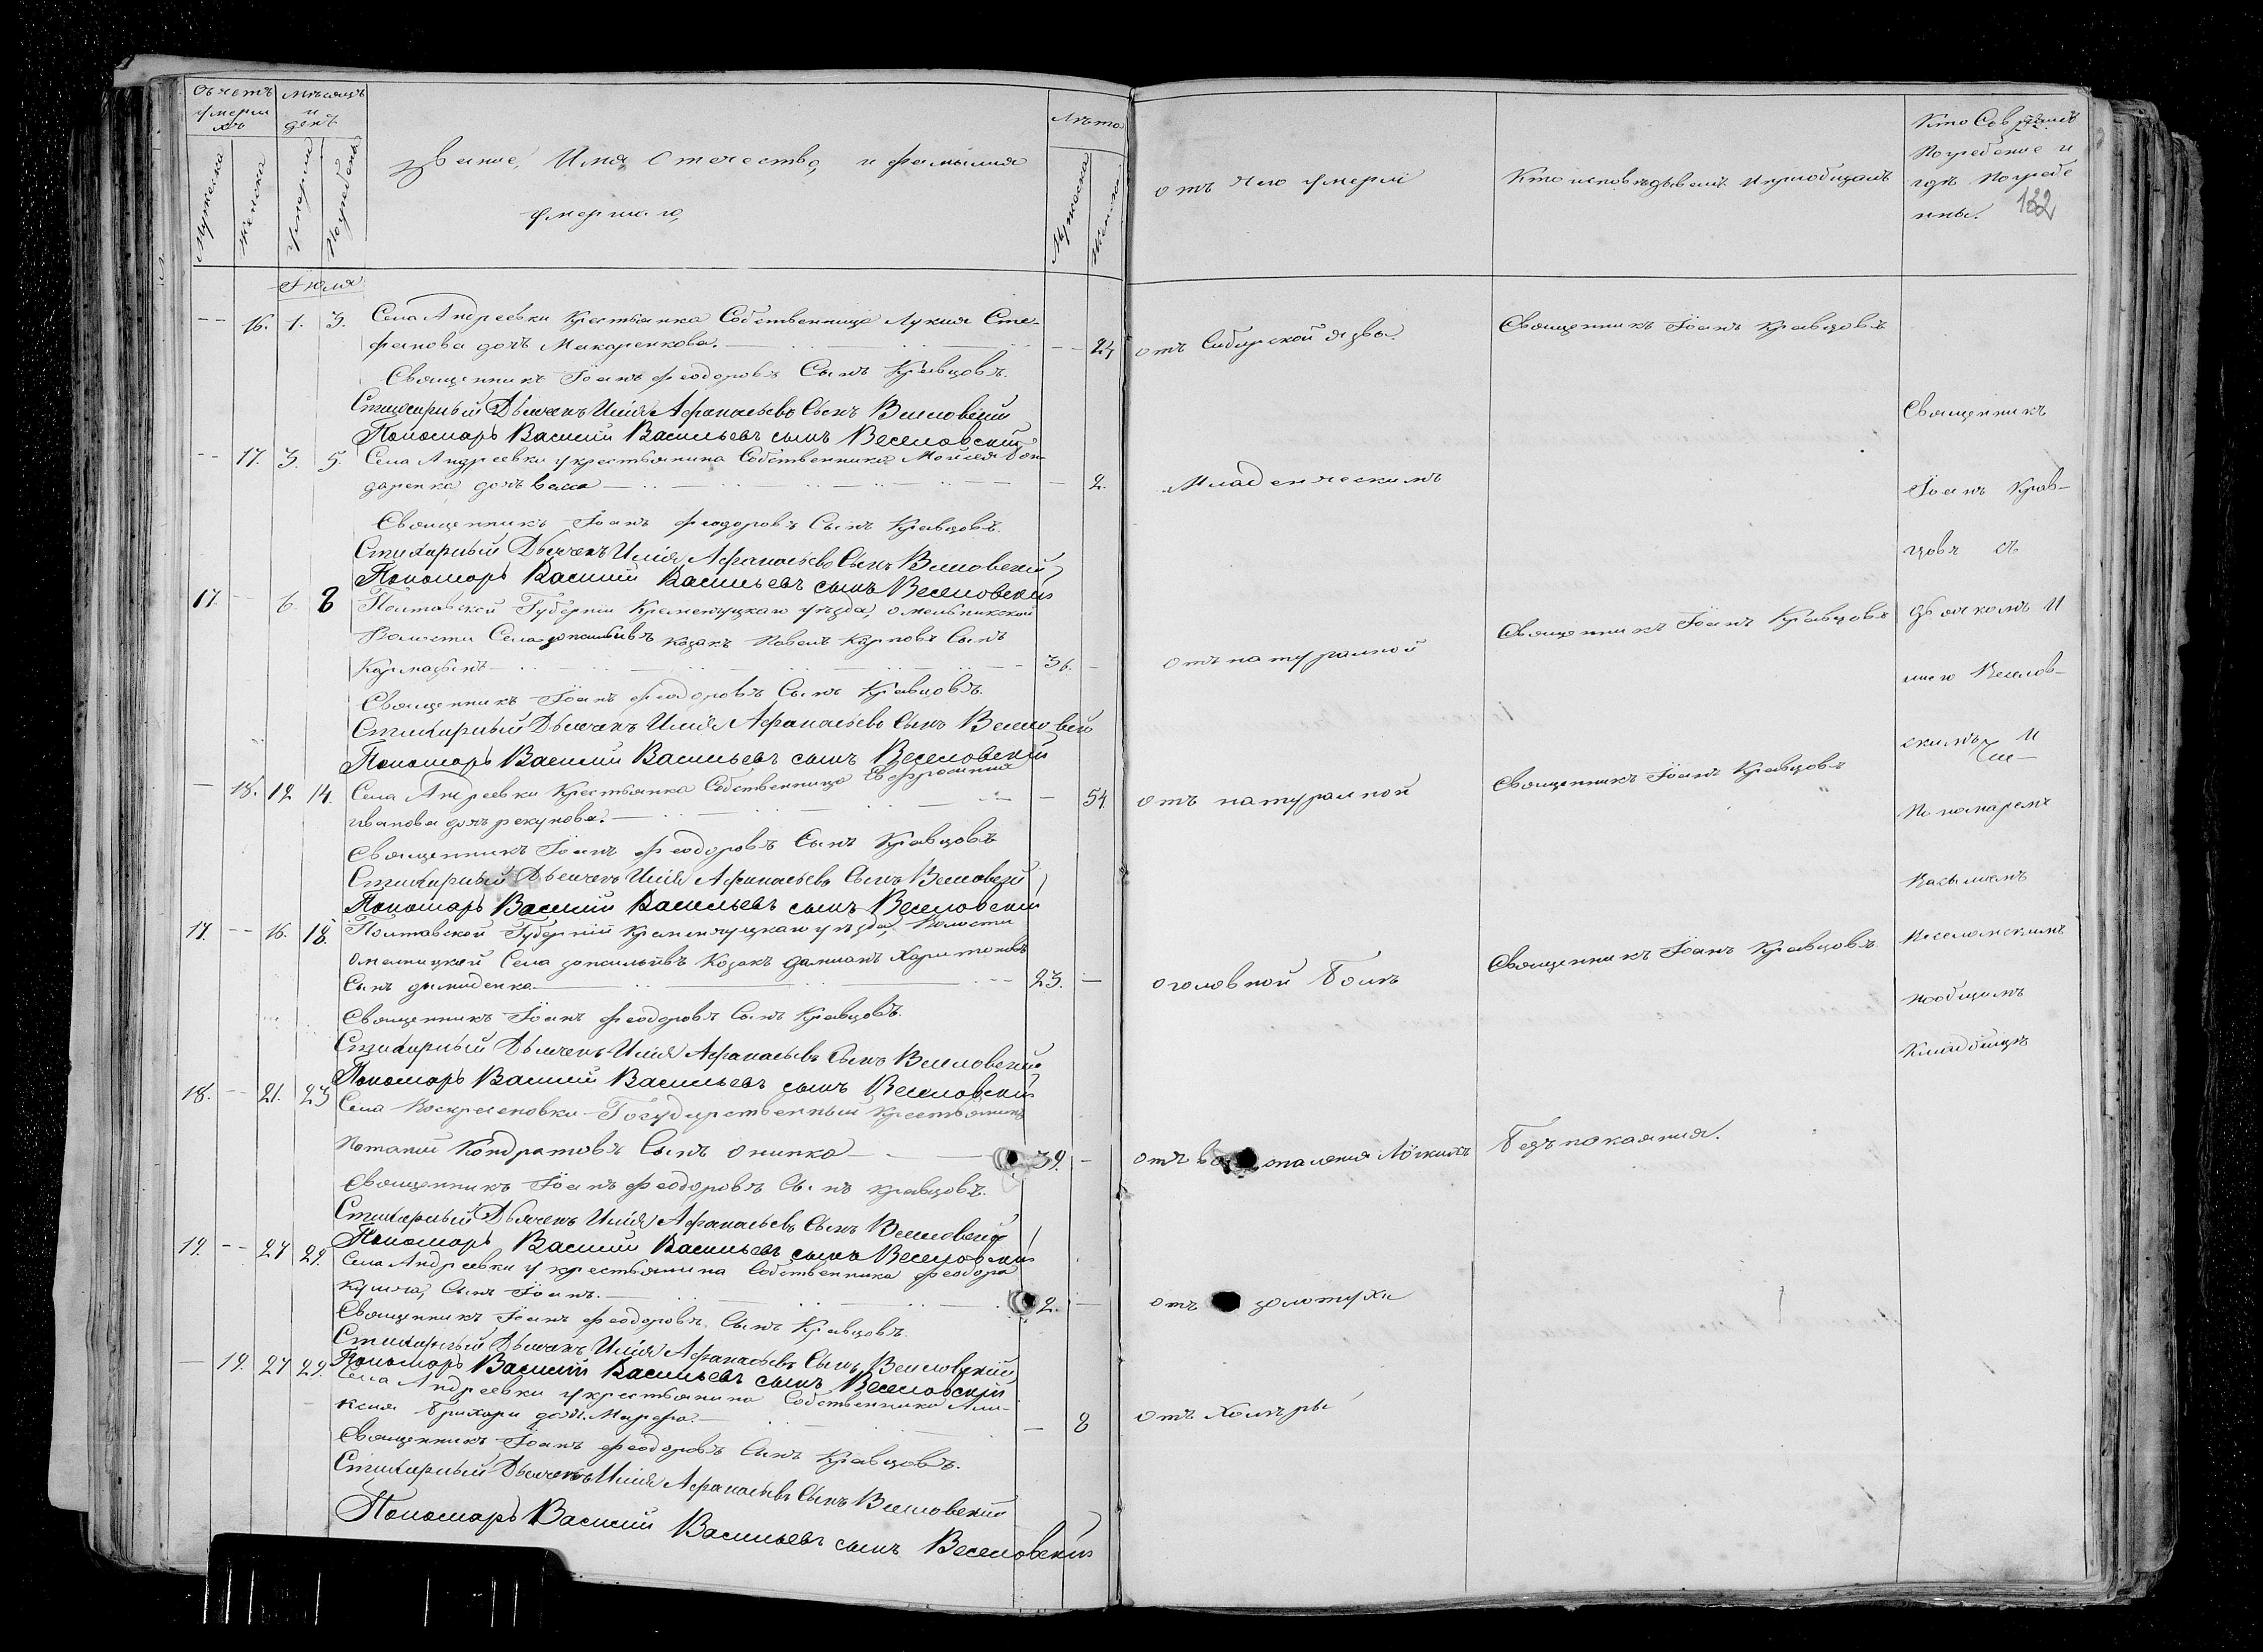 Счетъ умерш хъ
Мѣсяцъ и день
Мужеска
Женска
Умерли
Погребены
Званіе, Имя, Отечество, и фамилия
умершаго,
Лѣта
Мужеска
Женска
отъ чего умерлі
Кто исповѣдывалъ и пріобщалъ
Кто Совершалъ
Погребение и
гдѣ Погребе
нны.
132
Іюля
16. 1. 3. Села Андреевки Крестьянка Собственница Лукия Сте-
фанова дочь Макаренкова. 24 отъ Сибирской язвы. Священникъ Іоанъ Кравцовъ
Священникъ Іоанъ Феодоровъ Сынъ Кравцовъ.
Стихарный Дьячекъ Илія Афанасьевъ Сынъ Веселовскій
Пономарь Василий Васильевъ сынъ Веселовский
17. 3. 5. Села Андреевки у крестьянина Собственника Мойсея Бон-
даренка дочь 2. Младенческимъ
Священникъ Іоанъ Феодоровъ Сынъ Кравцовъ.
Стихарный Дьячекъ Илія Афанасьевъ Сынъ Веселовский
Пономарь Василий Васильевъ сынъ Веселовский
17. 6. 8 Полтавской Губерніи Кременчуцкаго уѣзда, омельникской
Волости Села козакъ Павелъ Карповъ Сынъ
36. отъ натуралной Священникъ Іоанъ Кравцовъ
Священникъ Іоанъ Феодоровъ Сынъ Кравцовъ.
Стихарный Дьячекъ Илія Афанасьевъ Сынъ Веселовскій
Пономарь Василий Васильевъ сынъ Веселовский
18. 12 14. Села Андреевки Крестьянка Собственница Евфросиния
иванова дочь рекунова. 54. отъ натуралной Священникъ Іоанъ Кравцовъ
Священникъ Іоанъ Феодоровъ Сынъ Кравцовъ
Стихарный Дьячекъ Илія Афанасьевъ Сынъ Веселовскій
Пономарь Василий Васильевъ сынъ Веселовский
17. 16. 18. Полтавской Губерніи Кременчуцкаго уѣзда, Волости
омелницкой Села Козакъ дамианъ Харитоновъ
Сынъ 23. оголовной Боли Священникъ Іоанъ Кравцовъ.
Священникъ Іоанъ Феодоровъ Сынъ Кравцовъ.
Стихарный Дьячекъ Илія Афанасьевъ Сынъ Веселовский
Пономарь Василий Васильевъ сынъ Веселовский
18. 21. 23 Села Воскресеновки Государственный Крестьянинъ
Потапий Кондратовъ Сынъ онипко 39. отъ опаления Лёгкихъ Безъ покаяния.
Священникъ Іоанъ Феодоровъ Сынъ Кравцовъ.
Стихарный Дьячекъ Илія Афанасьевъ Сынъ Веселовскій
Пономарь Василий Васильевъ сынъ Веселовский
19. 27 29. Села Андреевки у крестьянина Собственника Феодора
Сынъ Іоанъ. 2. отъ золотухи
Священникъ Іоанъ Феодоровъ Сынъ Кравцовъ.
Стихарный Дьячекъ Илія Афанасьевъ Сынъ Веселовский
Пономарь Василий Васильевъ сынъ Веселовский
19. 27 29. Села Андреевки у крестьянина Собственника Али-
ксия дочь Марфа. 8 отъ Холѣры
Священникъ Іоанъ Феодоровъ Сынъ Кравцовъ.
Стихарный Дьячекъ Илія Афанасьевъ Сынъ Веселовский
Пономарь Василий Васильевъ сынъ Веселовский
Священникъ
Іоанъ Крав-
цовъ съ
дьячкомъ И
лиею Веселов-
скимъ И
Пономаремъ
Васылиемъ
Веселовскимъ
на общимъ
Кладбищѣ